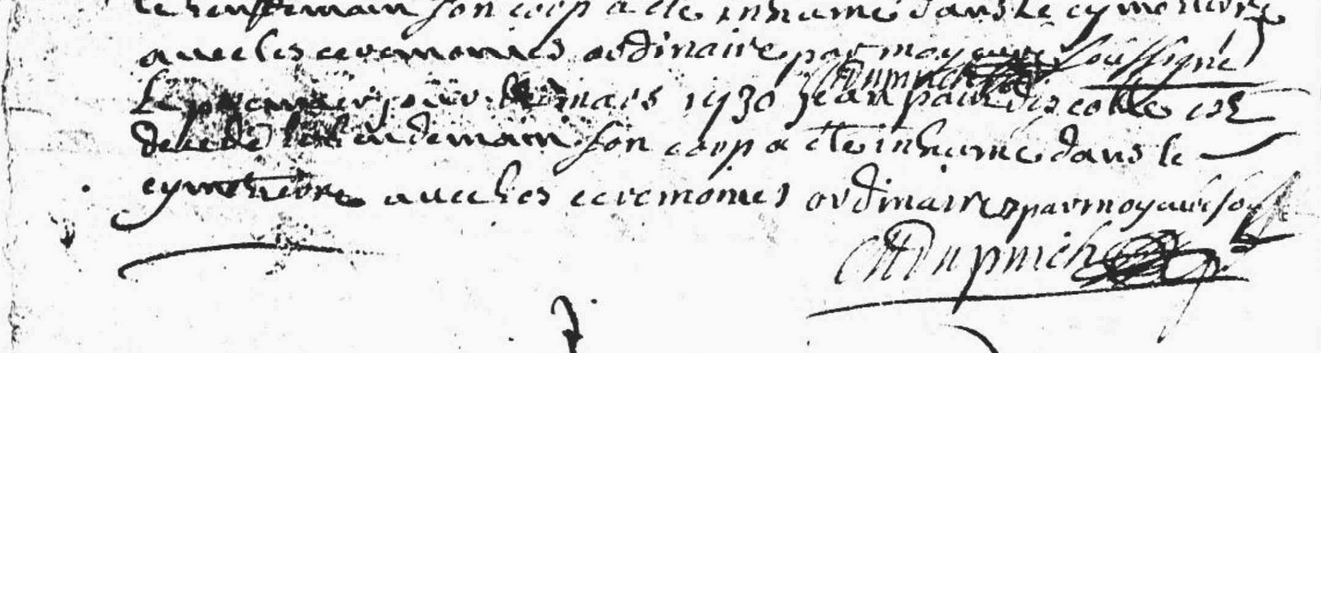 le lendemain son corp a ete inhumé dans le cymetierre
avec les ceremonies ordinaire par moy curé soussigné
Le premier jour de mars 1730 jean paul est
decedé le lendemain son corp a ete inhumé dans le
cymetierre avec les ceremonies ordinaires par moy curé sous